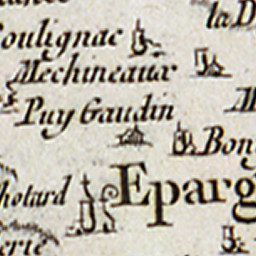 la D
oulignac
Mechineaux
Puy Gaudin
M
Bon
hotard
Eparg
erie